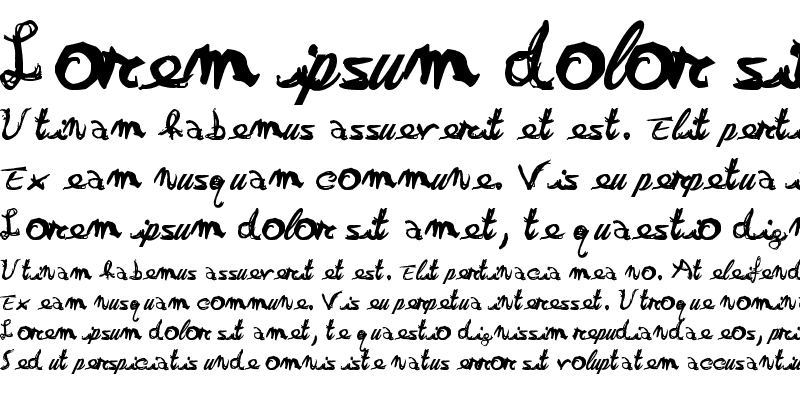 Lorem ipsum dolor sit
Utinam habemus assueverit et est. Elit pertin
Ex eam nusquam commune. Vis eu perpetua i
Lorem ipsum dolor sit amet, te quaestio dign
Utinam habemus assueverit et est. Elit pertinacia mea no. At eleifend
Ex eam nusquam commune. Vis eu perpetua interesset. Utroque nomin
Lorem ipsum dolor sit amet, te quaestio dignissim repudiandae eos, pri
Sed ut perspiciatis unde omnis iste natus error sit voluptatem accusantiu